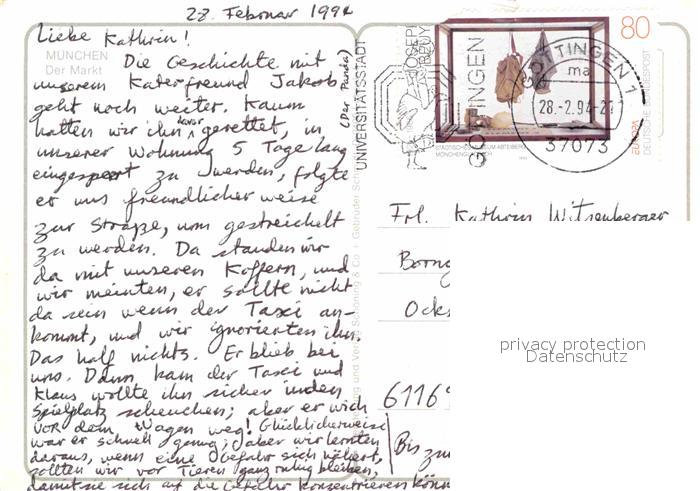 28. Februar 1994
Liebe Kathrin!
MÜNCHEN
Der Markt
Die Geschichte mit
unserem Katerfreund Jakob
(Der Panda)
geht noch weiter. Kaum
hatten wir ihn davor gerettet, in
unserer Wohnung 5 Tage lang
eingesperrt zu werden, folgte
er uns freundlicher weise
zur Straße, um gestreichelt
zu werden. Da standen wir
da mit unseren Koffern, und
wir meinten, er sollte nicht
da sein wenn der Taxi an-
kommt, und wir ignorierten ihn.
Das half nichts. Er blieb bei
uns. Dann kam der Taxi und
Klaus wollte ihn sicher in den
Spielplatz scheuchen; aber er wich
vor dem Wagen weg! Glücklicherweise
war er schnell genug; aber wir lernten
daraus, wenn eine Gefahr sich nähert,
sollten wir vor Tieren ganz ruhig bleiben,
damit sie sich auf die Gefahr konzentrieren könn
Bis zu
UNIVERSITÄTSSTADT
GÖTTINGEN
JOSEPH
BEUYS
80
GÖTTINGEN 1
ma
28.-2.94-
37073
EUROPA
DEUTSCHE BUNDESPOST
STÄDTISCHES MUSEUM ABTEIBERG
MÖNCHENGLADBACH
Verlag Schöning & Co + Gebrüder
Frl. Kathrin Witzenberger
Born
Ock
6116
privacy protection
Datenschutz